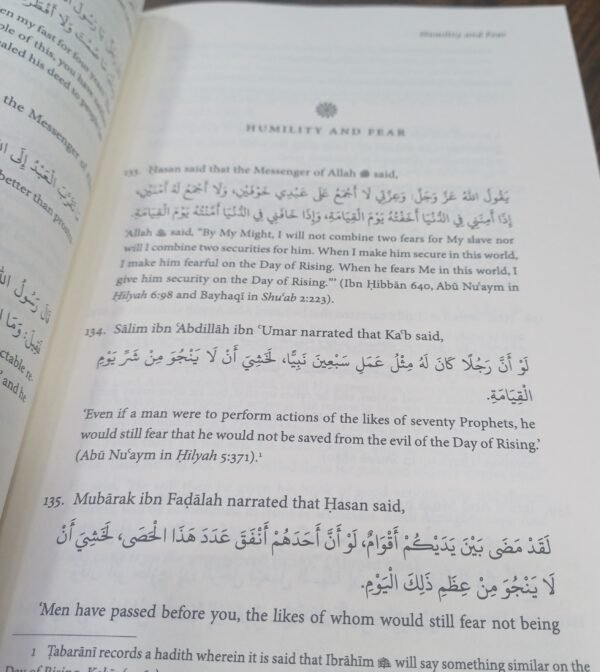 Humility and Fear
HUMILITY AND FEAR
133. Ḥasan said that the Messenger of Allah ﷺ said,
يَقُولُ اللهُ عَزَّ وَجَلَّ: وَعِزَّتِي لَا أَجْمَعُ عَلَى عَبْدِي خَوْفَيْنِ، وَلَا أَجْمَعُ لَهُ أَمْنَيْنِ،
إِذَا أَمِنَنِي فِي الدُّنْيَا أَخَفْتُهُ يَوْمَ الْقِيَامَةِ، وَإِذَا خَافَنِي فِي الدُّنْيَا أَمَّنْتُهُ يَوْمَ الْقِيَامَةِ.
'Allah ﷻ said, "By My Might, I will not combine two fears for My slave nor
will I combine two securities for him. When I make him secure in this world,
I make him fearful on the Day of Rising. When he fears Me in this world, I
give him security on the Day of Rising."' (Ibn Ḥibbān 640, Abū Nuʿaym in
Ḥilyah 6:98 and Bayhaqī in Shuʿab 2:223).
134. Sālim ibn ʿAbdillāh ibn ʿUmar narrated that Kaʿb said,
لَوْ أَنَّ رَجُلًا كَانَ لَهُ مِثْلُ عَمَلِ سَبْعِينَ نَبِيًّا، لَخَشِيَ أَنْ لَا يَنْجُوَ مِنْ شَرِّ يَوْمِ
الْقِيَامَةِ.
'Even if a man were to perform actions of the likes of seventy Prophets, he
would still fear that he would not be saved from the evil of the Day of Rising.'
(Abū Nuʿaym in Ḥilyah 5:371).¹
135. Mubārak ibn Faḍālah narrated that Ḥasan said,
لَقَدْ مَضَى بَيْنَ يَدَيْكُمْ أَقْوَامٌ، لَوْ أَنَّ أَحَدَهُمْ أَنْفَقَ عَدَدَ هَذَا الْحَصَى، لَخَشِيَ أَنْ
لَا يَنْجُوَ مِنْ عِظَمِ ذَلِكَ الْيَوْمِ.
'Men have passed before you, the likes of whom would still fear not being
1 Ṭabarānī records a hadith wherein it is said that Ibrāhīm ﷺ will say something similar on the
Day of Rising.